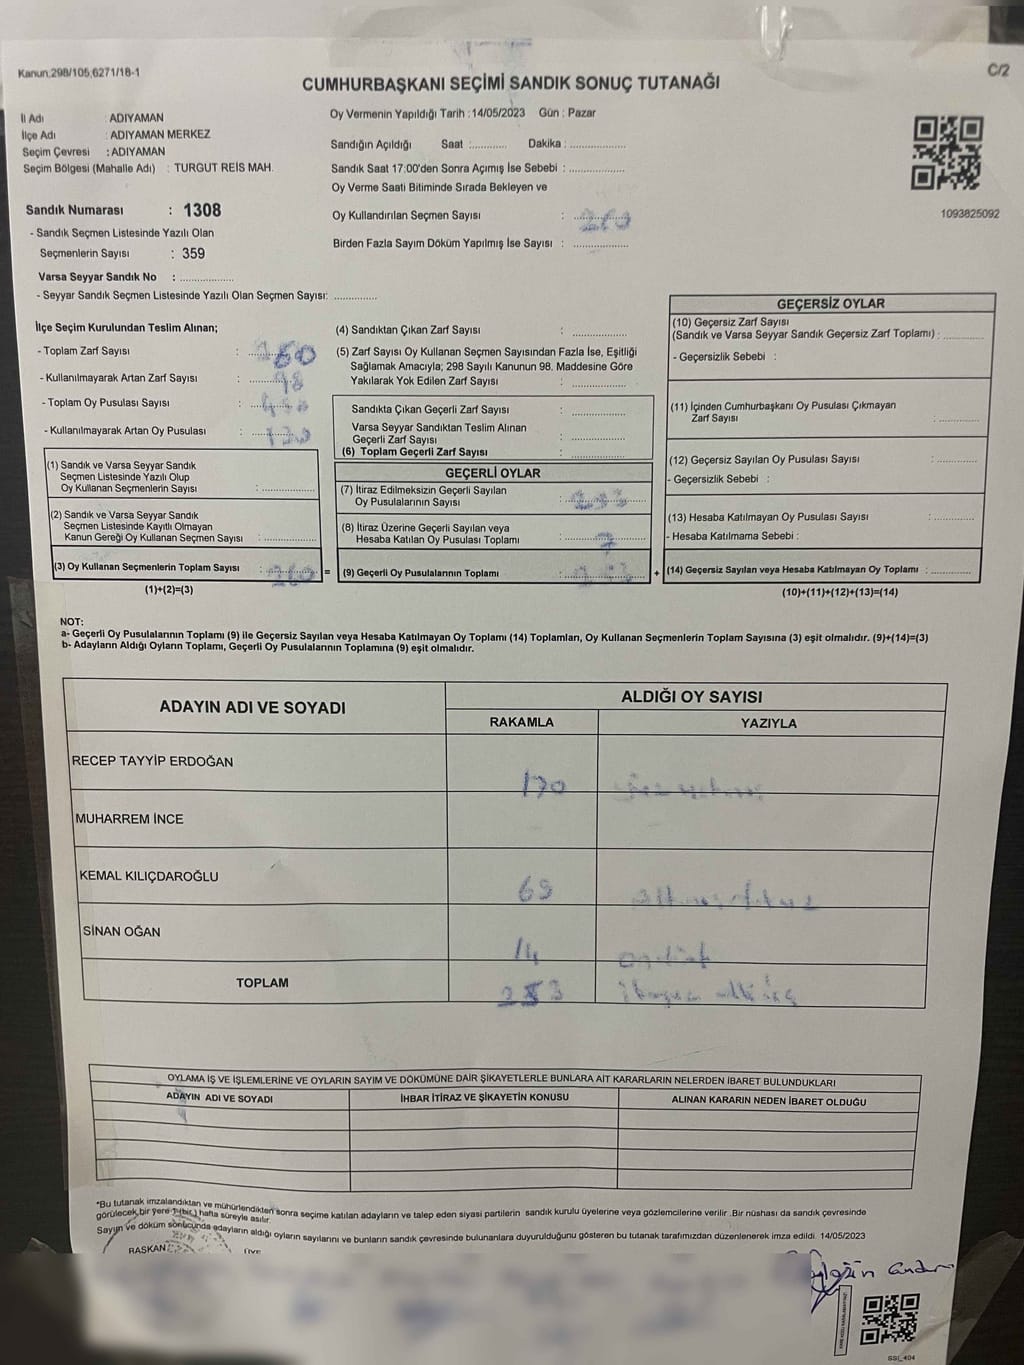 Kanun:298/105,6271/18-1
C/2
CUMHURBAŞKANI SEÇİMİ SANDIK SONUÇ TUTANAĞI
İl Adı : ADIYAMAN
İlçe Adı : ADIYAMAN MERKEZ
Seçim Çevresi : ADIYAMAN
Seçim Bölgesi (Mahalle Adı) : TURGUT REİS MAH.
Sandık Numarası : 1308
- Sandık Seçmen Listesinde Yazılı Olan
Seçmenlerin Sayısı : 359
Varsa Seyyar Sandık No : ...............
- Seyyar Sandık Seçmen Listesinde Yazılı Olan Seçmen Sayısı: ............
Oy Vermenin Yapıldığı Tarih :14/05/2023 Gün : Pazar
Sandığın Açıldığı Saat :........... Dakika : ...............
Sandık Saat 17:00'den Sonra Açımış İse Sebebi : ...............
Oy Verme Saati Bitiminde Sırada Bekleyen ve
Oy Kullandırılan Seçmen Sayısı : 260
Birden Fazla Sayım Döküm Yapılmış İse Sayısı : ...............
1093825092
İlçe Seçim Kurulundan Teslim Alınan;
- Toplam Zarf Sayısı :
- Kullanılmayarak Artan Zarf Sayısı : 98
- Toplam Oy Pusulası Sayısı :
- Kullanılmayarak Artan Oy Pusulası :
(1) Sandık ve Varsa Seyyar Sandık
Seçmen Listesinde Yazılı Olup
Oy Kullanan Seçmenlerin Sayısı : ...............
(2) Sandık ve Varsa Seyyar Sandık
Seçmen Listesinde Kayıtlı Olmayan
Kanun Gereği Oy Kullanan Seçmen Sayısı : ...............
(3) Oy Kullanan Seçmenlerin Toplam Sayısı : 260 =
(1)+(2)=(3)
(4) Sandıktan Çıkan Zarf Sayısı : ...............
(5) Zarf Sayısı Oy Kullanan Seçmen Sayısından Fazla İse, Eşitliği
Sağlamak Amacıyla; 298 Sayılı Kanunun 98. Maddesine Göre
Yakılarak Yok Edilen Zarf Sayısı : ...............
Sandıkta Çıkan Geçerli Zarf Sayısı : ...............
Varsa Seyyar Sandıktan Teslim Alınan
Geçerli Zarf Sayısı : ...............
(6) Toplam Geçerli Zarf Sayısı : ...............
GEÇERLİ OYLAR
(7) İtiraz Edilmeksizin Geçerli Sayılan
Oy Pusulalarının Sayısı :
(8) İtiraz Üzerine Geçerli Sayılan veya
Hesaba Katılan Oy Pusulası Toplamı : 7
(9) Geçerli Oy Pusulalarının Toplamı : +
GEÇERSİZ OYLAR
(10) Geçersiz Zarf Sayısı
(Sandık ve Varsa Seyyar Sandık Geçersiz Zarf Toplamı) : ............
- Geçersizlik Sebebi :
(11) İçinden Cumhurbaşkanı Oy Pusulası Çıkmayan
Zarf Sayısı : ............
(12) Geçersiz Sayılan Oy Pusulası Sayısı : ............
- Geçersizlik Sebebi :
(13) Hesaba Katılmayan Oy Pusulası Sayısı : ............
- Hesaba Katılmama Sebebi :
(14) Geçersiz Sayılan veya Hesaba Katılmayan Oy Toplamı : ............
(10)+(11)+(12)+(13)=(14)
NOT:
a- Geçerli Oy Pusulalarının Toplamı (9) ile Geçersiz Sayılan veya Hesaba Katılmayan Oy Toplamı (14) Toplamları, Oy Kullanan Seçmenlerin Toplam Sayısına (3) eşit olmalıdır. (9)+(14)=(3)
b- Adayların Aldığı Oyların Toplamı, Geçerli Oy Pusulalarının Toplamına (9) eşit olmalıdır.
ADAYIN ADI VE SOYADI
ALDIĞI OY SAYISI
RAKAMLA YAZIYLA
RECEP TAYYİP ERDOĞAN 170
MUHARREM İNCE
KEMAL KILIÇDAROĞLU 69
SİNAN OĞAN 14
TOPLAM 253
OYLAMA İŞ VE İŞLEMLERİNE VE OYLARIN SAYIM VE DÖKÜMÜNE DAİR ŞİKAYETLERLE BUNLARA AİT KARARLARIN NELERDEN İBARET BULUNDUKLARI
ADAYIN ADI VE SOYADI İHBAR İTİRAZ VE ŞİKAYETİN KONUSU ALINAN KARARIN NEDEN İBARET OLDUĞU
*Bu tutanak imzalandıktan ve mühürlendikten sonra seçime katılan adayların ve talep eden siyasi partilerin sandık kurulu üyelerine veya gözlemcilerine verilir .Bir nüshası da sandık çevresinde
görülecek bir yere 1 (bir ) hafta süreyle asılır.
Sayım ve döküm sonucunda adayların aldığı oyların sayılarını ve bunların sandık çevresinde bulunanlara duyurulduğunu gösteren bu tutanak tarafımızdan düzenlenerek imza edildi. 14/05/2023
BAŞKAN
SSI_404